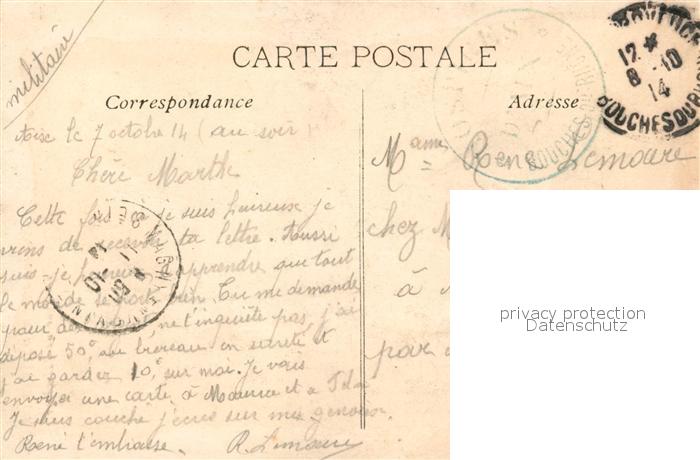 militaire
CARTE POSTALE
Correspondance
Adresse
12 *
8 10
14
BOUCHES DU R
BOUCHES
le 7 octobre 14 (au soir)
Chère Marthe
Cette fois je suis heureux je
viens de recevoir ta lettre. Aussi
suis-je heureux d'apprendre que tout
le monde se porte bien. Tu me demande
pour des ne t'inquiète pas, j'ai
déposé 50f au bureau en sureté et
j'ai garder 10f sur moi. Je vais
envoyer une carte à Maurice et a
Je suis couché j'écris sur mes genoux.
René t'embrasse. R. Lemoure
Mame René Lemoure
chez M
à
par
privacy protection
Datenschutz